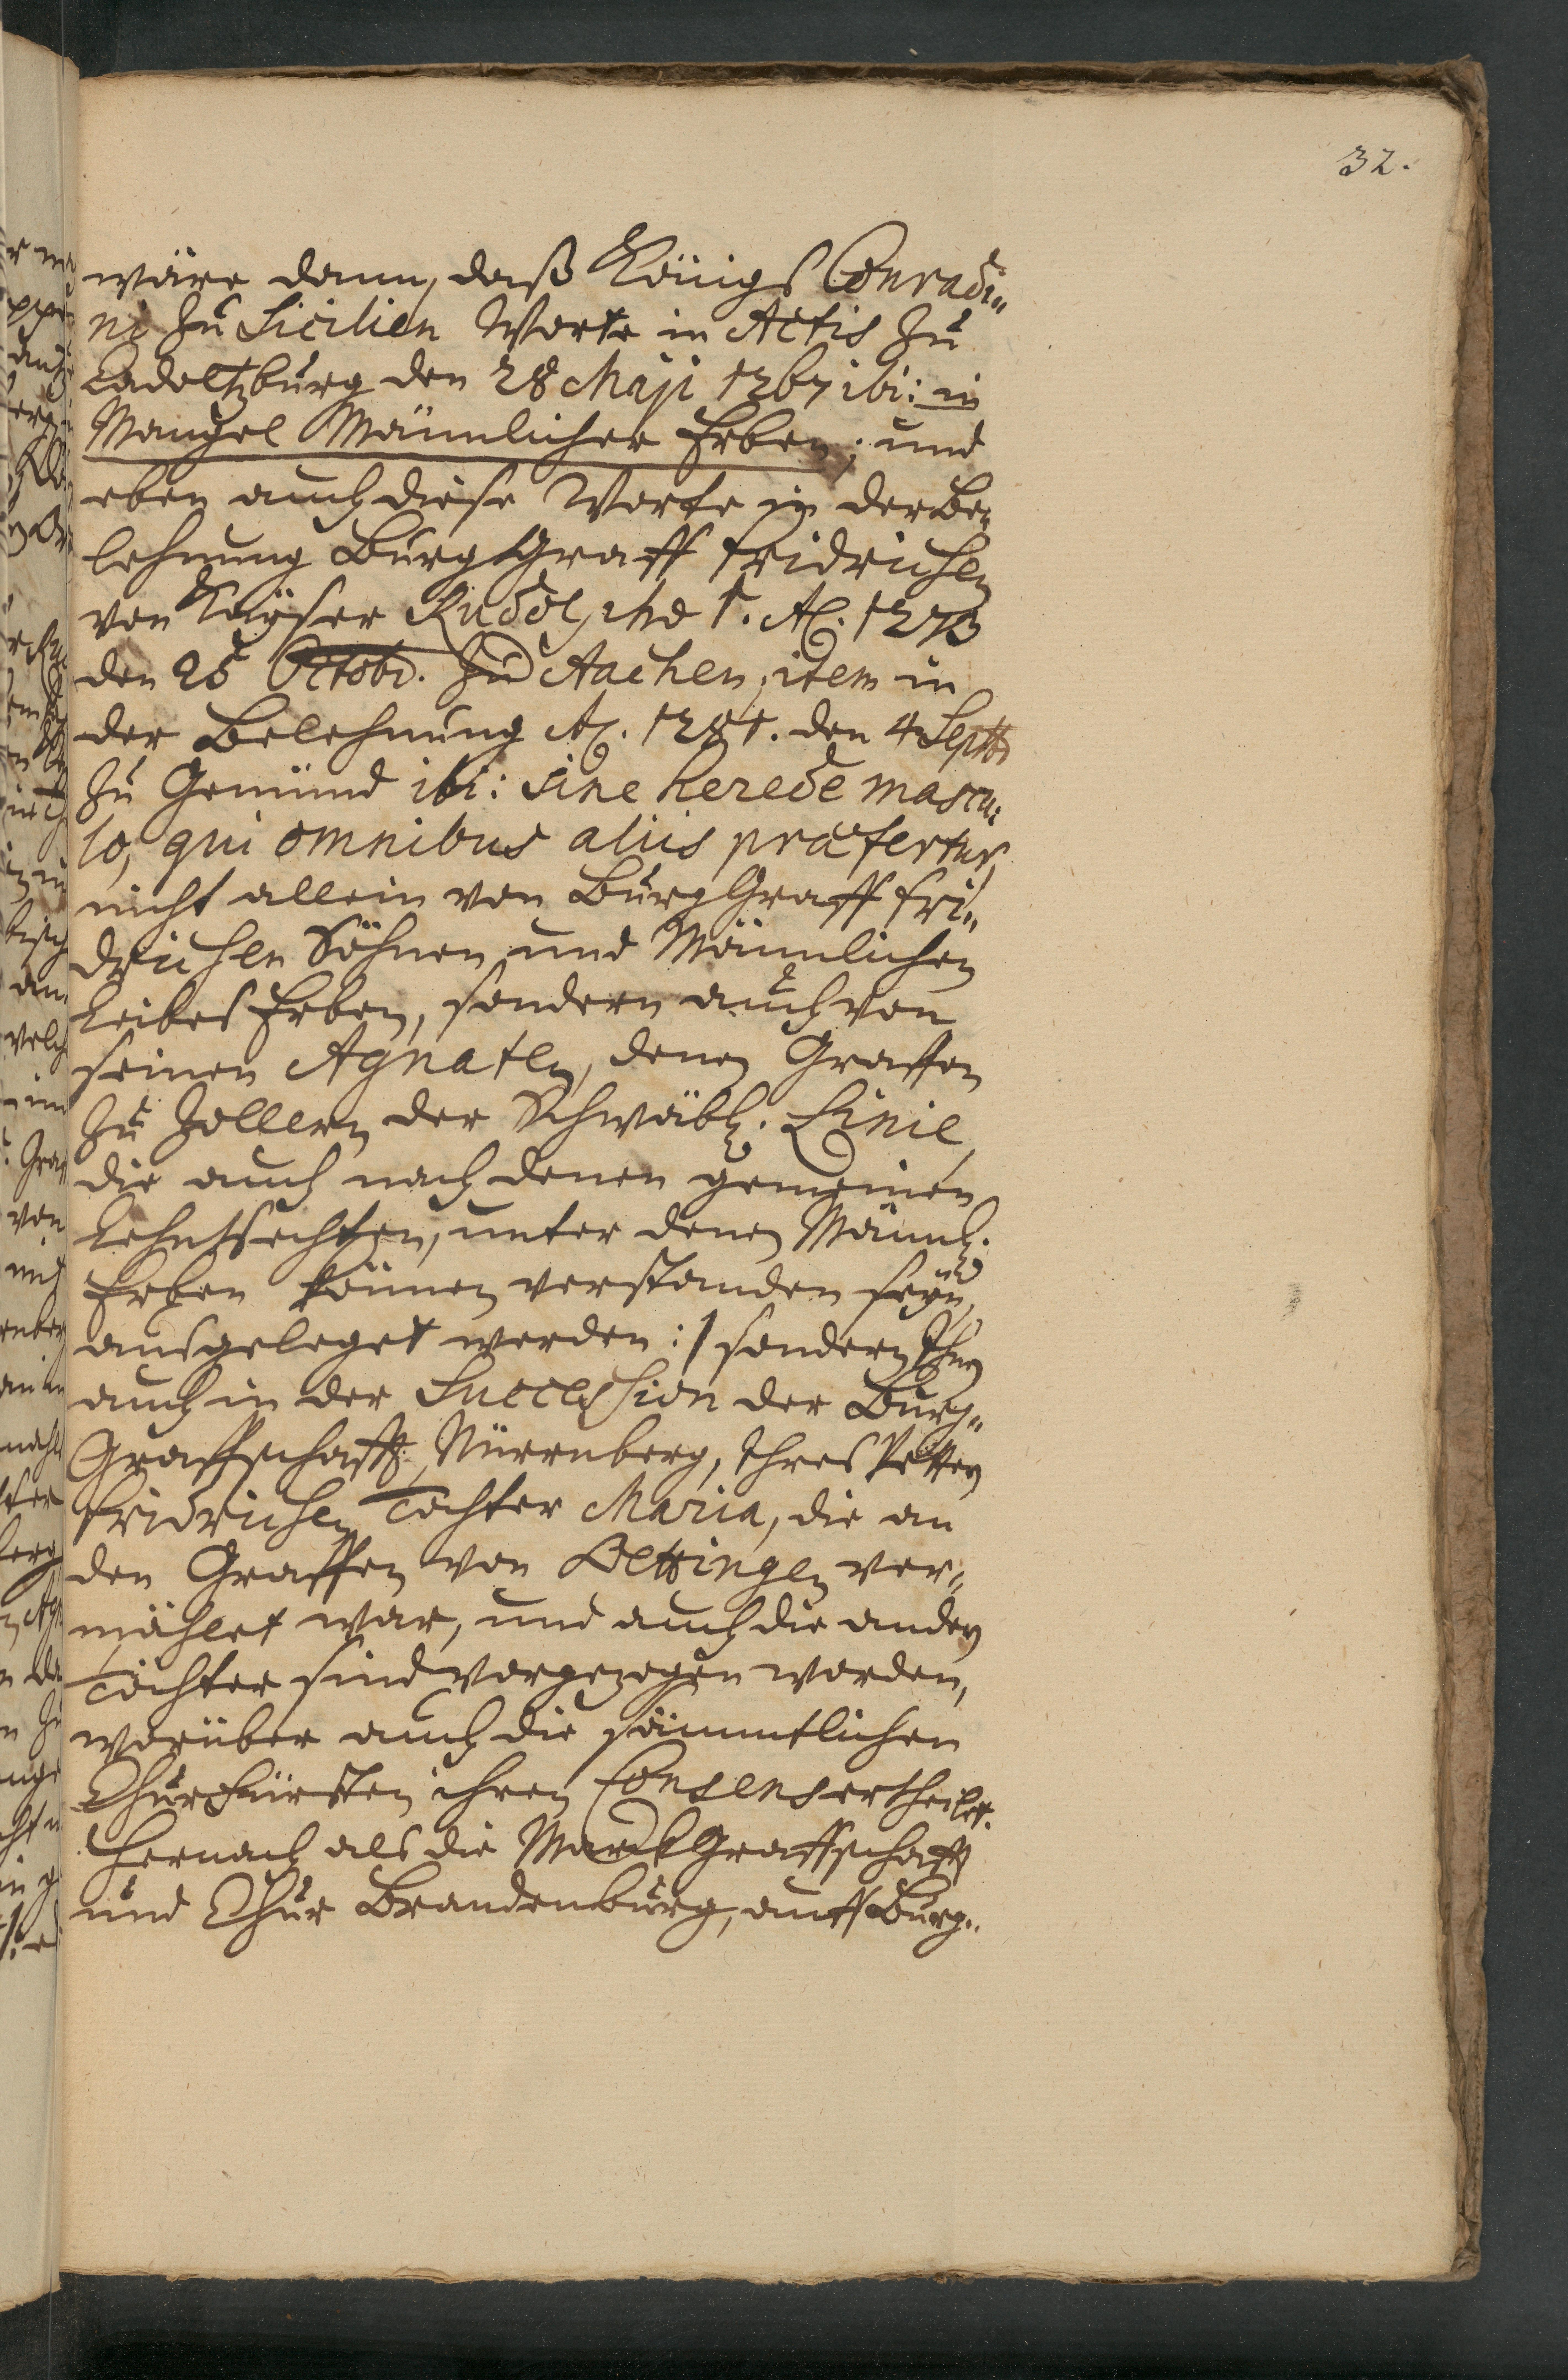 32.
wäre dann, daß Königs Conradi„
ni zu Sicilien Worte in Actis zu
Cadoltzburg den 28 Maji 1267 ibi: in
Mangel Männlicher Erben; und
eben auch diese Worte in der Be„
lehnung BurgGraff Fridrichen
von Kayser Rudolpho 1. Aô. 1273
den 25 Octobr. zu Aachen, item in
der Belehnung Aô. 1281. den 4 Septbr
zu Gemünd ibi: sine herede mascu„
lo, qui omnibus aliis præfertur,
nicht allein von BurgGraff Fri„
drichen Söhnen und Männlichen
LeibesErben, sondern auch von
seinen Agnaten, denen Graffen
zu Zollern der Schwäbl. Linie,
die auch nach denen gemeinen
Lehnsrechten, unter denen Männl.
Erben können verstanden seyn,
ausgeleget werden :/ sondern Ihnen
auch in der Succession der Burg„
Graffschafft Nürrnberg, Ihres Vettern
Fridrichen Tochter Maria, die an
den Graffen von Oettingen ver„
mählet war, und auch die andern
Töchter sind vorgezogen worden,
worüber auch die sämmtlichen
ChurFürsten ihren Consens ertheilet.
Hernach als die MarckGraffschafft
und Chur Brandenburg, auff Burg„